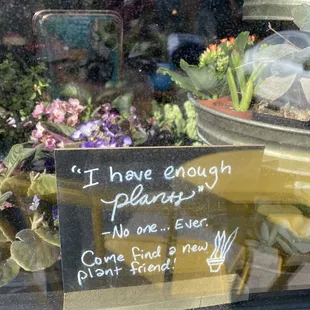 "I have enough
plants"
-No one... Ever.
Come find a new
plant friend!